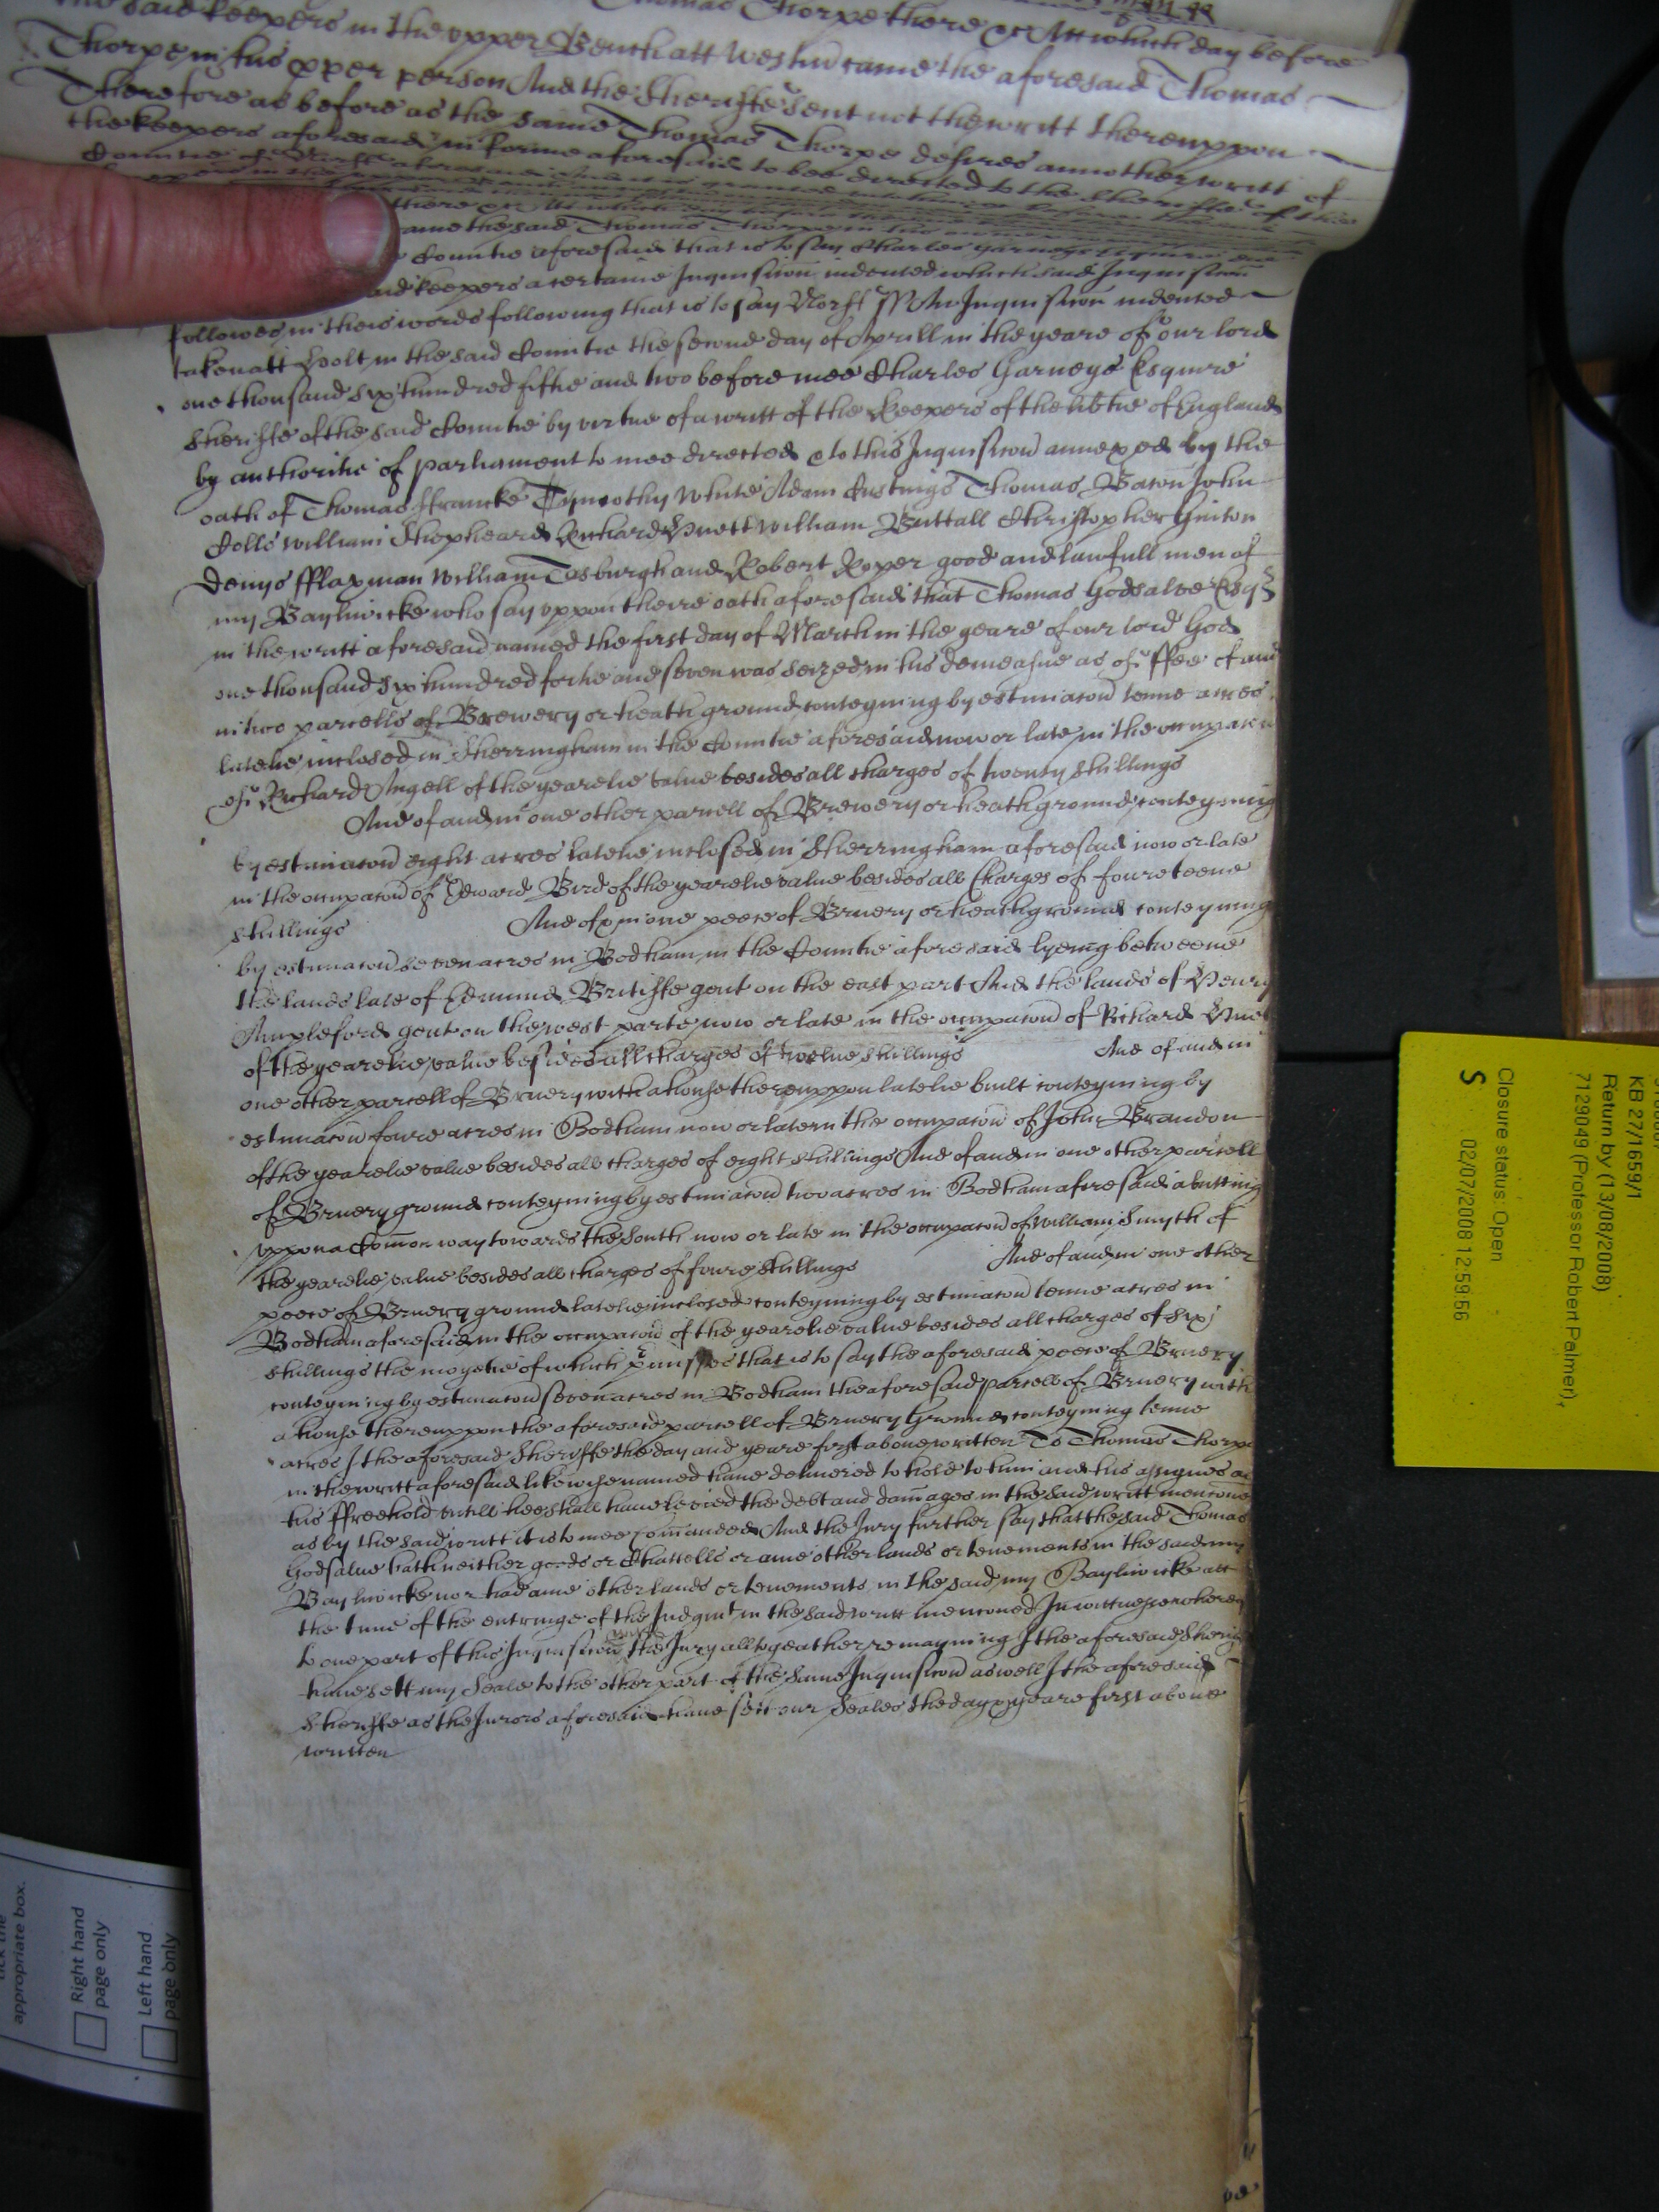 Thomas Thorpe there &c Att which day before
the said keepers in the upper Bench att Westm came the aforesaid Thomas
Thorpe in his pper person And the Sheriffe sent not the writt thereuppon
Therefore as before as the same Thomas Thorpe desires annother writt of
the keepers aforesaid in forme aforesaid to bee directed to the Sheriffe of the
Countie of Norff aforesaid
there &c Att which day before
came the said Thomas Thorpe in his
Countie aforesaid that is to say Charles Garneys Esquire
said keepers a certaine Inquisicon indented which said Inquisicon
followes in theis words following that is to say Norff ss An Inquisicon indented
taken att Holt in the said Countie the second day of Aprill in the yeare of our lord
one thousand six hundred fiftie and two before mee Charles Garneys Esquire
Sheriffe of the said Countie by virtue of a writt of the Keepers of the libtie of England
by authoritie of parliament to mee directed & to this Inquisicon annexed by the
oath of Thomas ffrancke Tymothy White Adam Custings Thomas Bacon John
Colls William Shepheard Richard William Buttall Christopher Ginton
Denys fflaxman William Tasburgh and Robert Roper good and lawfull men of
my Bayliwicke who say uppon theire oath aforesaid that Thomas Godsalve Esq
in the writt aforesaid named the first day of March in the yeare of our lord God
one thousand six hundred fortie and seven was seized in his demeasne as of ffee of and
in two parcells of Brewery or heath ground conteyning by estimacon tenne acres
latelie inclosed in Sherringham in the Countie aforesaid now or late in the occupacon
of Richard Angell of the yearelie value besides all charges of twenty shillings
And of and in one other parcell of Brewery or heath ground conteyning
by estimacon eight acres latelie inclosed in Sherringham aforesaid now or late
in the occupacon of Edward Bird of the yearelie value besides all Charges of foureteene
shillings And of & in one peece of Bruery or heath ground conteyning
by estimacon seven acres in Bodham in the Countie aforesaid lyeing betweene
the lands late of Edmund Britiffe gent on the east part And the lands of Henry
Ampleford gent on the west parte now or late in the occupacon of Richard
of the yearelie value besides all charges of twelve shillings And of and in
one other parcell of Bruery with a house thereuppon latelie built conteyning by
estimacon foure acres in Bodham now or late in the occupacon of John Brandon
of the yearelie value besides all charges of eight shillings And of and in one other parcell
of Bruery ground conteyning by estimacon two acres in Bodham aforesaid abutting
uppon a Comon way towards the South now or late in the occupacon of William Smyth of
the yearelie value besides all charges of foure shillings And of and in one other
peece of Bruery ground latelie inclosed conteyning by estimacon tenne acres in
Bodham aforesaid in the occupacon of the yearelie value besides all charges of six
shillings the moyetie of which pmisses that is to say the aforesaid peece of Bruery
conteyning by estimacon seven acres in Bodham the aforesaid parcell of Bruery with
a house thereuppon the aforesaid parcell of Bruery Ground conteyning tenne
acres I the aforesaid Sheriffe the day and yeare first above written To Thomas Thorpe
in the writt aforesaid likewise named have delivered to hold to him and his assignes as
his ffreehold untill hee shall have levied the debt and damages in the said writt menconed
as by the said writt it is to mee comanded And the Jury further say that the said Thomas
Godsalve hath neither goods or Chattells or anie other lands or tenements in the said my
Bayliwicke nor had anie other lands or tenements in the said my Bayliwicke att
the time of the entringe of the Judgmt in the said writt menconed In wittnes whereof
to one part of this Inquisicon with the Jury altogeather remayning I the aforesaid Sheriffe
have sett my Seale to the other part of the same Inquisicon aswell I the aforesaid
Sheriffe as the Jurors aforesaid have sett our Seales the day & yeare first above
written
KB 27/1659/1
Return by (13/08/2008)
7129049 (Professor Robert Palmer),
Closure status: Open
S 02/07/2008 12:59:56
appropriate box.
Right hand
page only
Left hand
page only